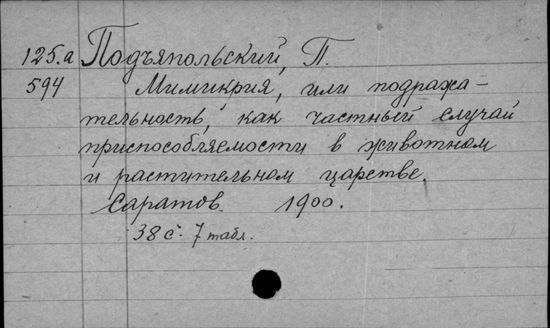 125.а Подъяпольский, П.
594 Мимикрия, или подража-
тельность, как частный случай
приспособляемости в животном
и растительном царстве.
Саратов. 1900.
38 с. 7 табл.